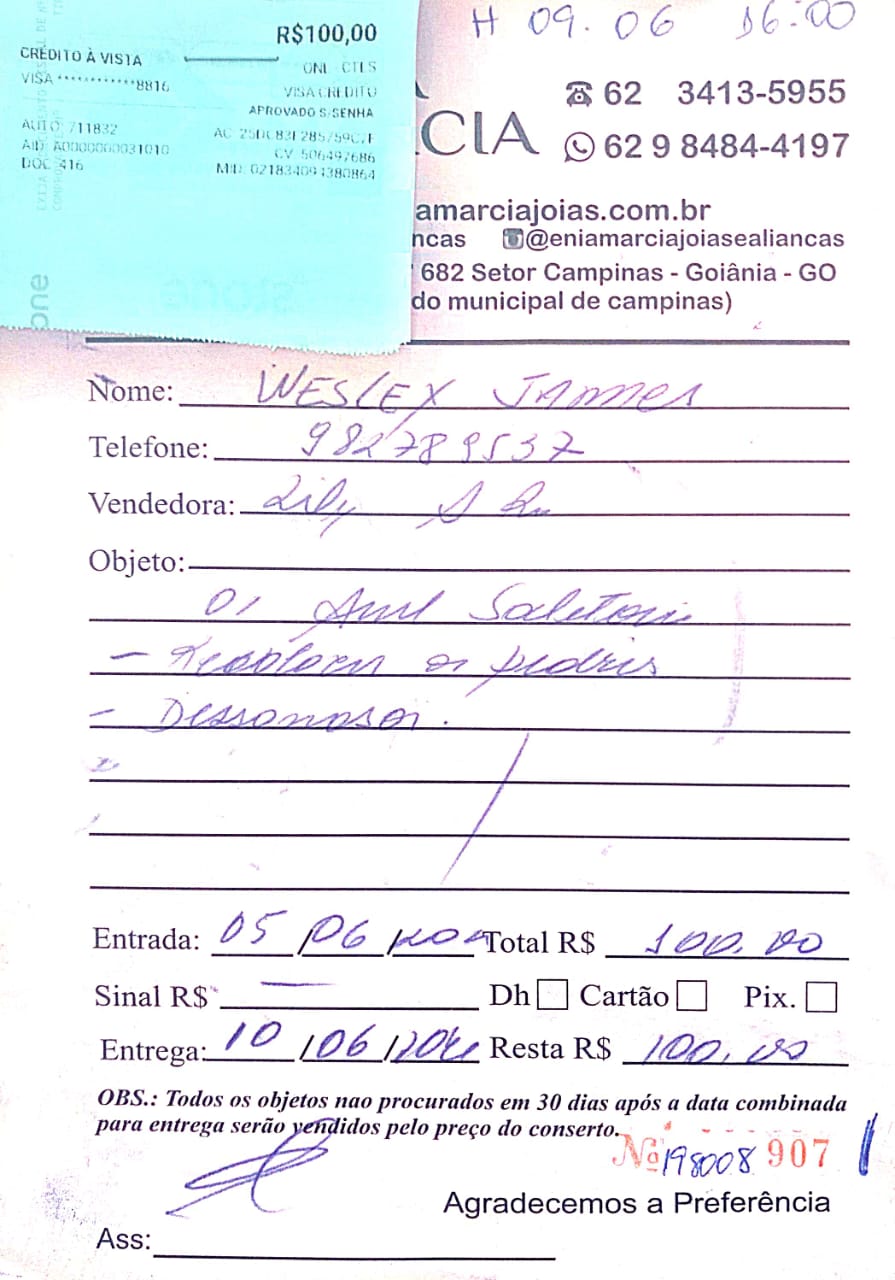 R$100,00
CRÉDITO À VISTA
ONL CTLS
VISA ************8816
VISA CREDITO
APROVADO S/SENHA
AUTO: 711832
AID: A0000000031010
CV 506497686
DOC: 416
H 09.06 16:00
CIA
62 3413-5955
62 9 8484-4197
amarciajoias.com.br
ncas @eniamarciajoisealiancas
682 Setor Campinas - Goiânia - GO
do municipal de campinas)
Nome: WESLEY
Telefone: 982789537
Vendedora: Lily
Objeto:
01
- os pedras
-
Entrada: 05/06/ Total R$ 100,00
Sinal R$ — Dh Cartão Pix.
Entrega: 10/06/ Resta R$ 100,00
OBS.: Todos os objetos nao procurados em 30 dias após a data combinada
para entrega serão vendidos pelo preço do conserto.
Nº 198008 907
Agradecemos a Preferência
Ass: